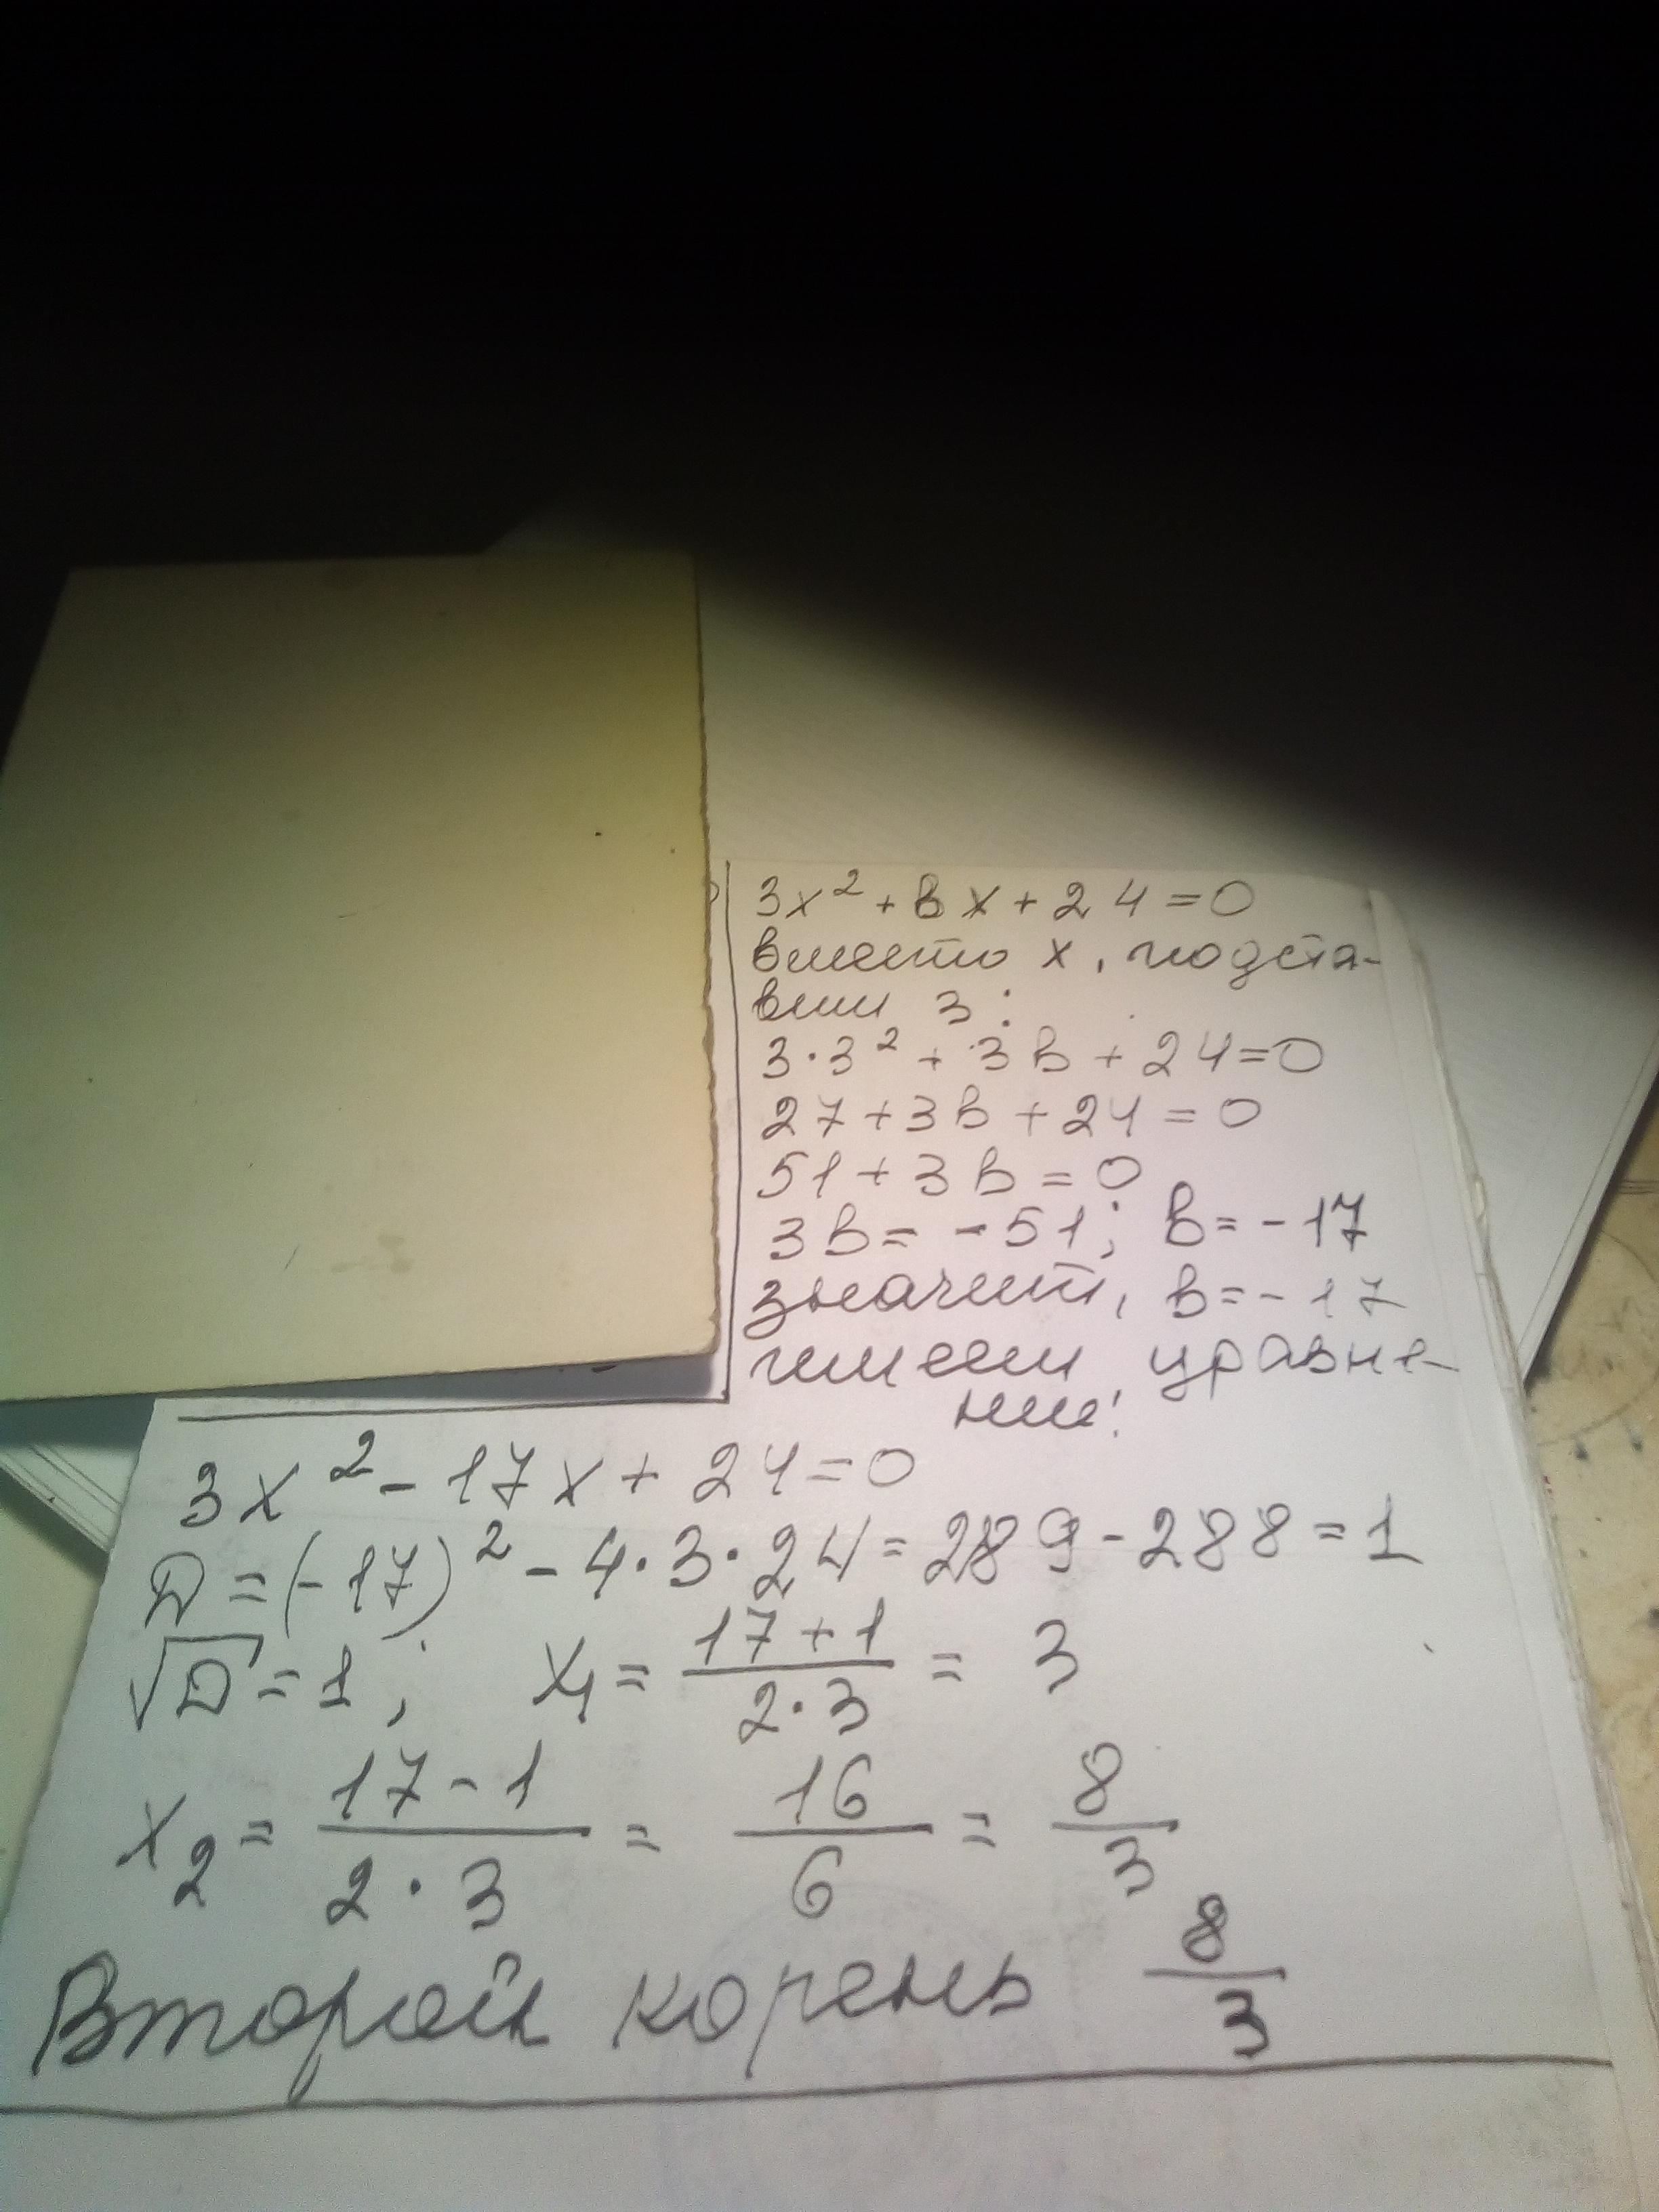 3x² + вx + 24 = 0
вместо x, подста-
вим 3:
3·3² + 3в + 24 = 0
27 + 3в + 24 = 0
51 + 3в = 0
3в = -51; в = -17
значит, в = -17
имеем уравне-
ние:
3x² - 17x + 24 = 0
D = (-17)² - 4·3·24 = 289 - 288 = 1
√D = 1; x₁ = (17+1)/(2·3) = 3
x₂ = (17-1)/(2·3) = 16/6 = 8/3
Второй корень 8/3